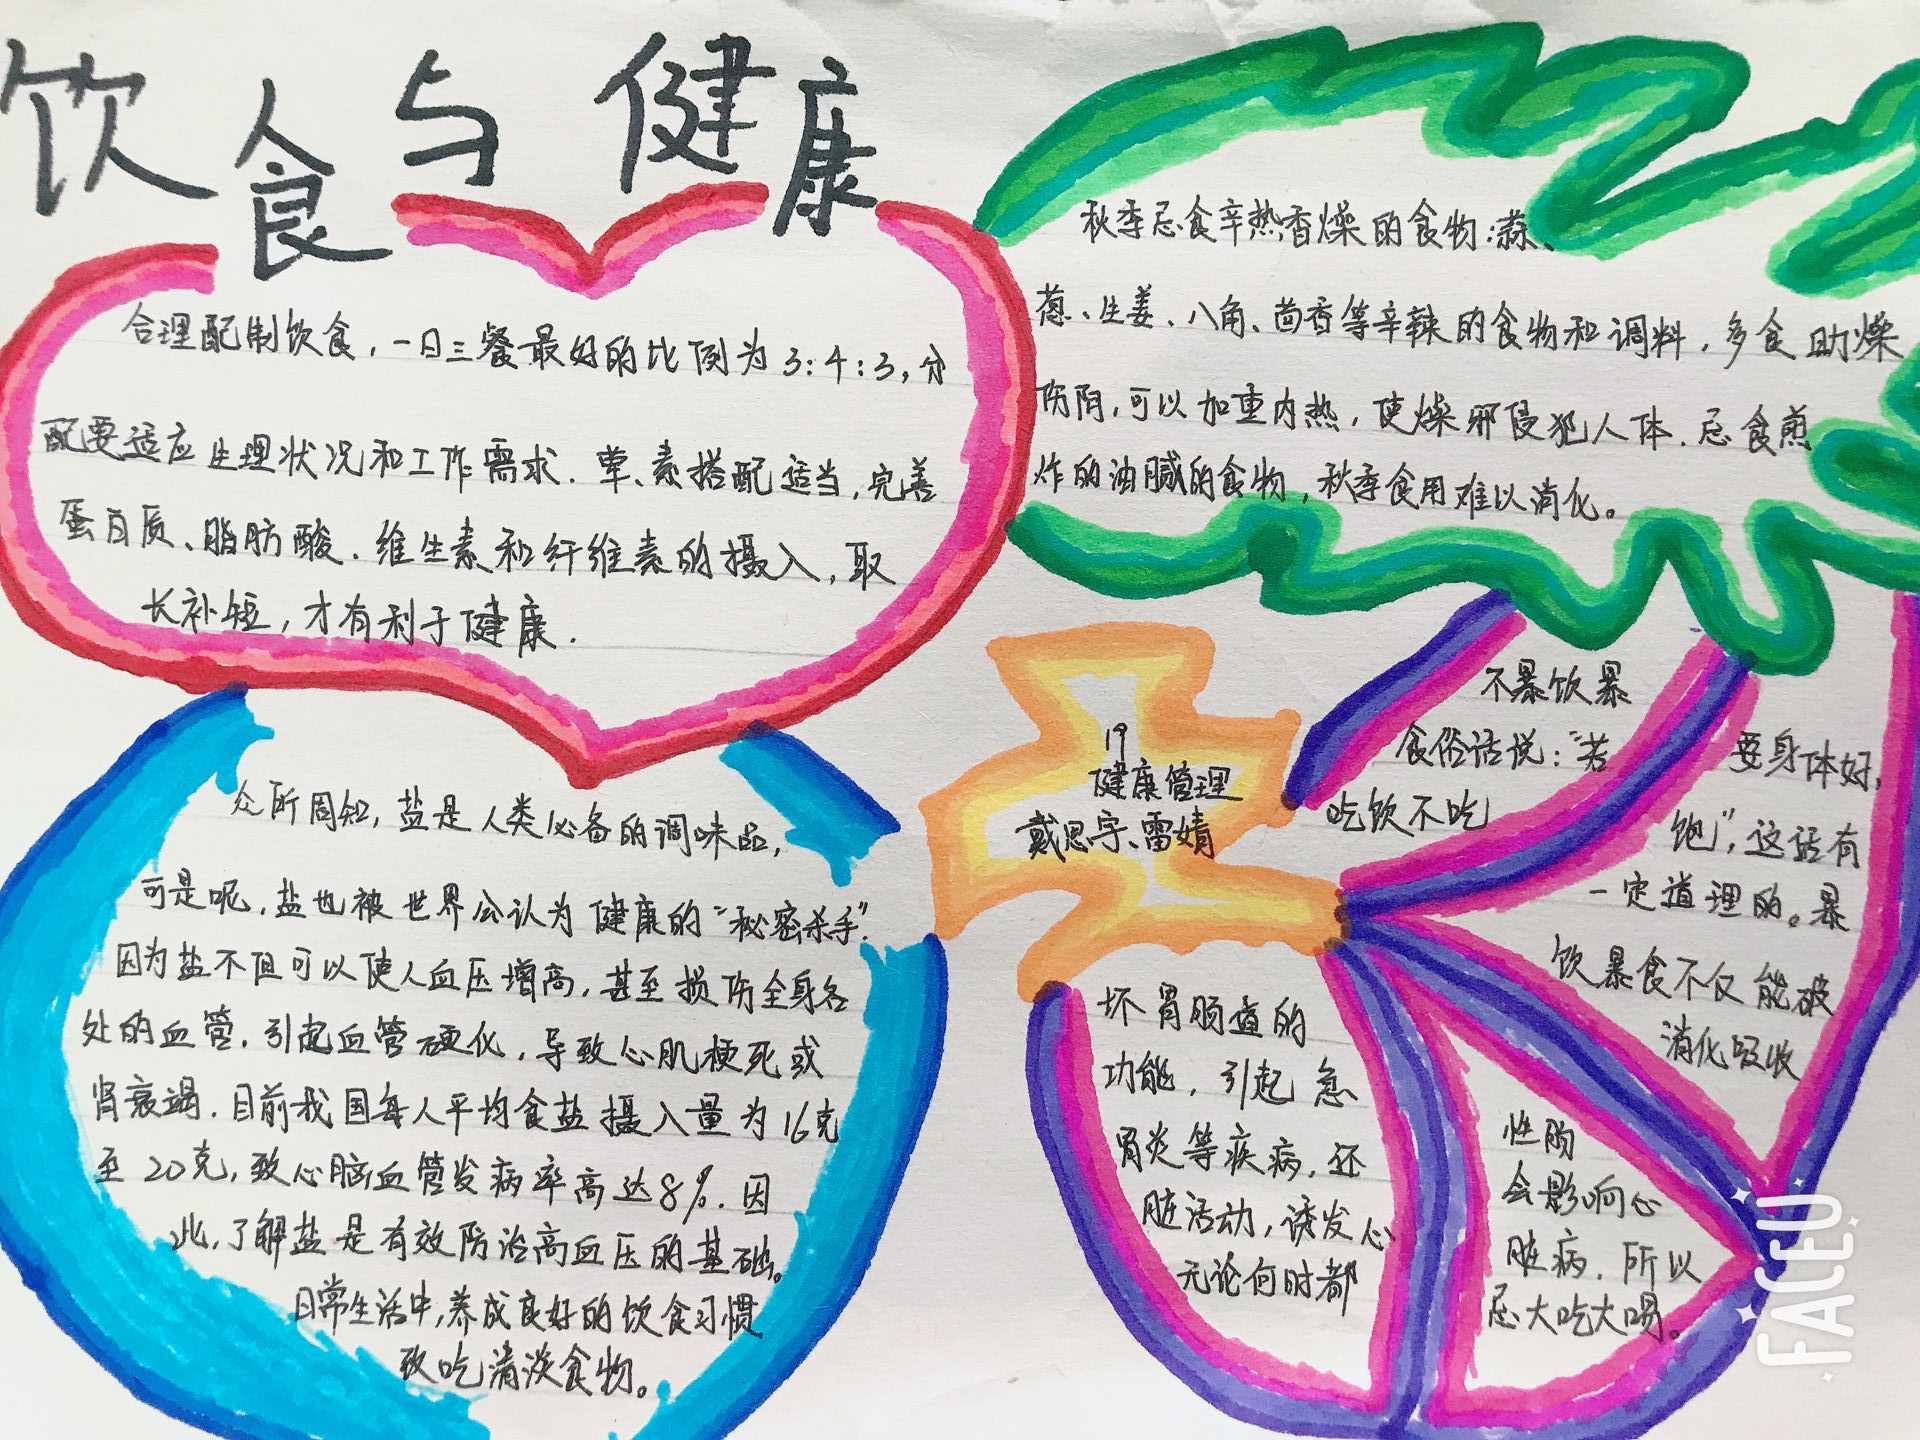 饮食与健康
合理配制饮食，一日三餐最好的比例为3:4:3，分
配要适应生理状况和工作需求．荤、素搭配适当，完善
蛋白质、脂肪酸．维生素和纤维素的摄入，取
长补短，才有利于健康．
秋季忌食辛热香燥的食物：蒜、
葱、生姜、八角、茴香等辛辣的食物和调料，多食助燥
伤阴，可以加重内热，使燥邪侵犯人体．忌食煎
炸的油腻的食物，秋季食用难以消化。
众所周知，盐是人类必备的调味品，
可是呢，盐也被世界公认为健康的“秘密杀手”．
因为盐不但可以使人血压增高，甚至损伤全身各
处的血管．引起血管硬化，导致心肌梗死或
肾衰竭．目前我国每人平均食盐摄入量为16克
至20克，致心脑血管发病率高达8%．因
此，了解盐是有效防治高血压的基础。
日常生活中，养成良好的饮食习惯
致吃清淡食物。
19
健康管理
戴思宇、雷婧
不暴饮暴
食俗话说：“若
要身体好，
吃饮不吃
饱”，这话有
一定道理的。暴
饮暴食不仅能破
消化吸收
坏胃肠道的
功能，引起急
性的
胃炎等疾病，还
会影响心
脏活动，诱发心
脏病．所以
无论何时都
忌大吃大喝。
FACEU